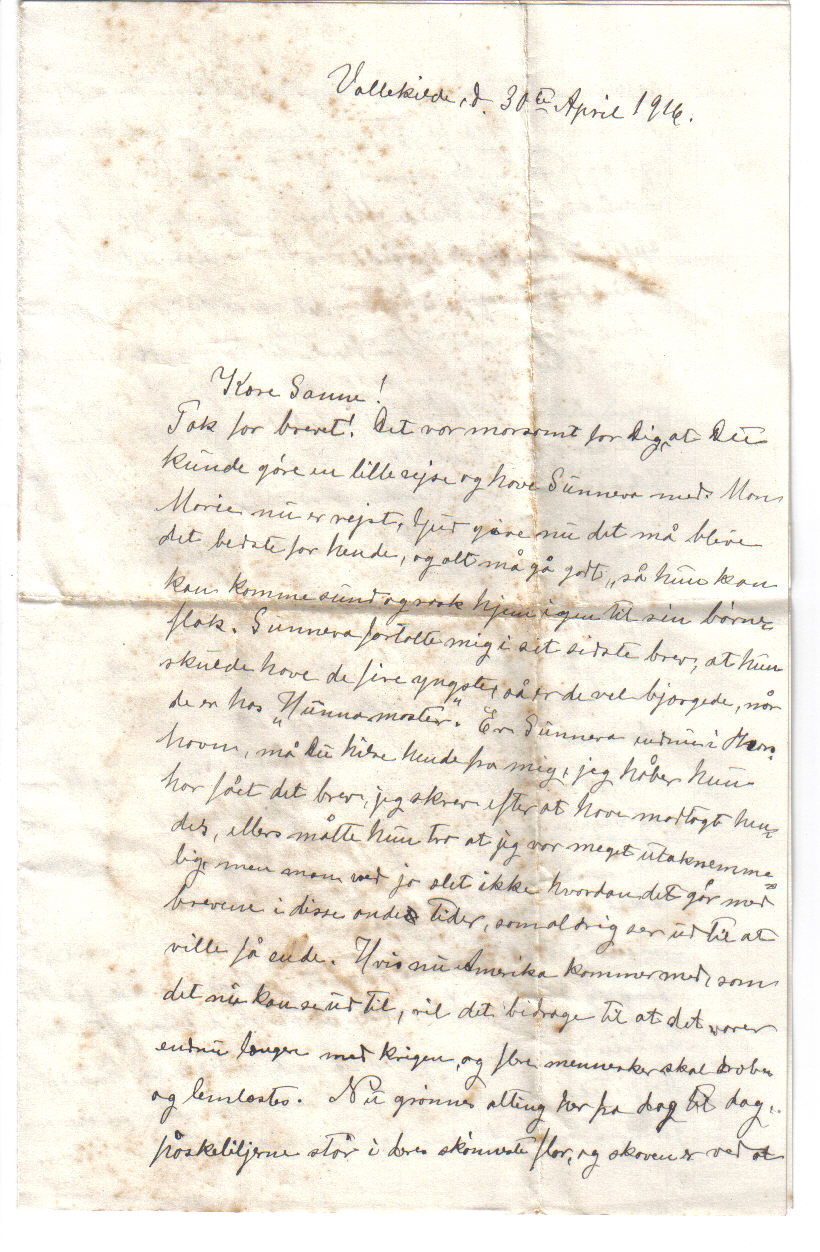 Vallekilde, d. 30te April 1916.
Kære Sanne!
Tak for brevet! Det var morsomt for Dig, at Du
kunde göre en lille rejse og have Sunneva med. Mon
Marie nu er rejst, Gud give nu det må blive
det bedste for hende, og alt må gå godt, så hun kan
kan komme sund og rask hjem igen til sin börne-
flok. Sunneva fortalte mig i sit sidste brev, at hun
skulde have de fire yngste, så er de vel bjærgede, når
de er hos "Hunnamoster". Er Sunneva endnu i Thors-
havn, må Du hilse hende fra mig, jeg håber hun
har fået det brev, jeg skrev efter at have modtaget hen-
des, ellers måtte hun tro at jeg var meget utaknemme-
lig, men man ved jo slet ikke hvordan det går med
brevene i disse onde tider, som aldrig ser ud til at
ville få ende. Hvis nu Amerika kommer med, som
det nu kan se ud til, vil det bidrage til at det varer
endnu længere med krigen, og flere mennesker skal dræbes
og lemlæstes. Nu grönnes alting her fra dag til dag,
påskeliljerne står i deres skönneste flor, og skoven er ved at